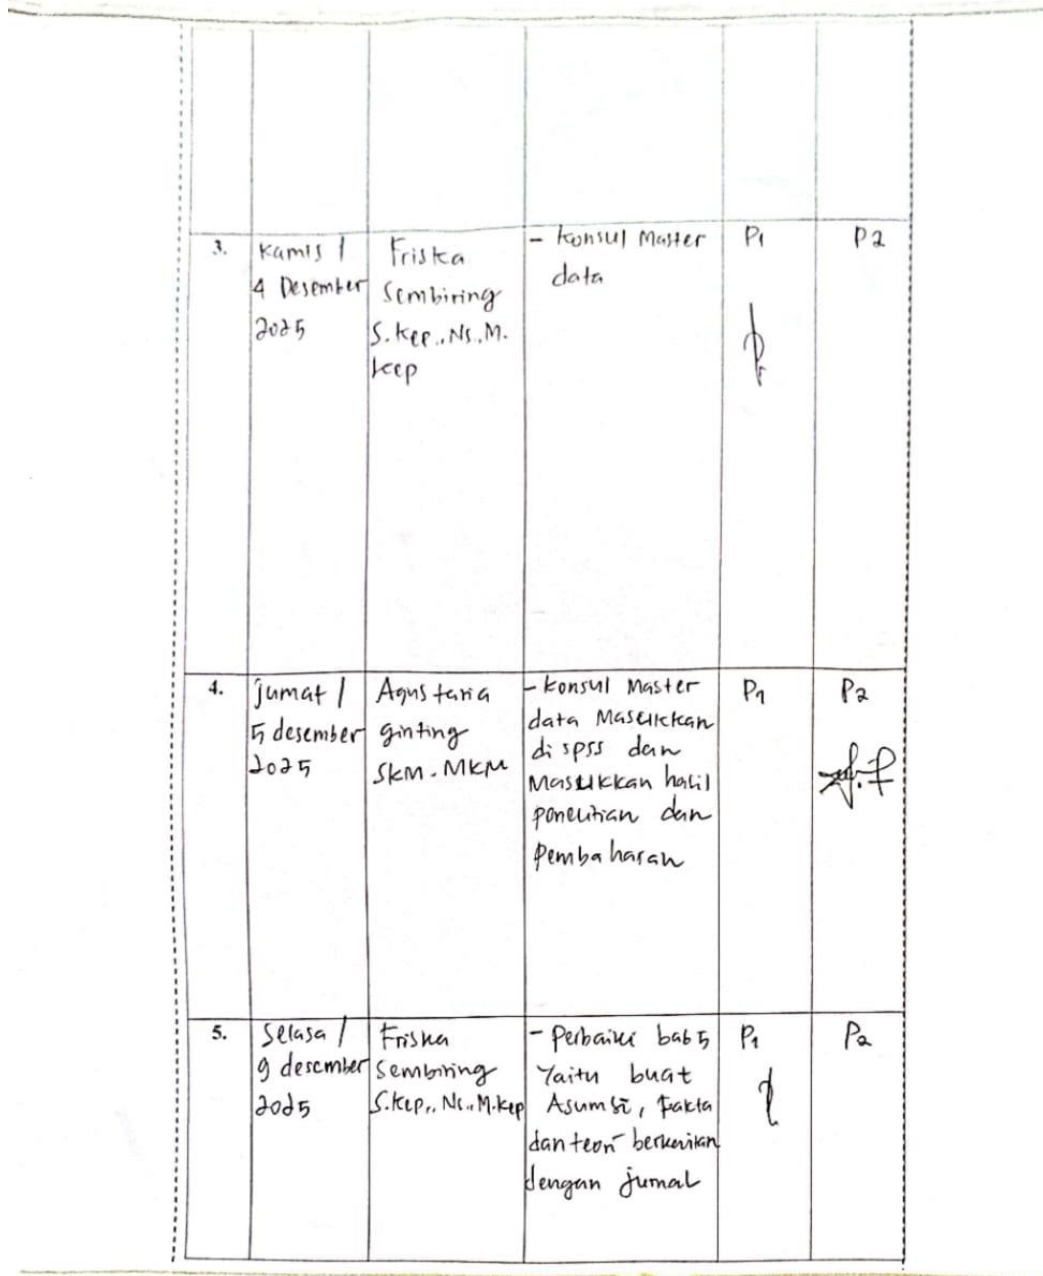 3.
Kamis /
4 Desember
2025
Friska
Sembiring
S.Kep.,Ns.,M.
kep
- Konsul Master
data
P1
P2
4.
jumat /
5 desember
2025
Agustaria
ginting
SKM. MKM
- konsul Master
data Masukkan
di spss dan
Masukkan hasil
penelitian dan
Pembahasan
P1
P2
5.
Selasa /
9 desember
2025
Friska
Sembiring
S.Kep., Ns., M.Kep
- Perbaiki bab 5
Yaitu buat
Asumsi, Fakta
dan teori berkaitan
dengan jurnal
P1
P2